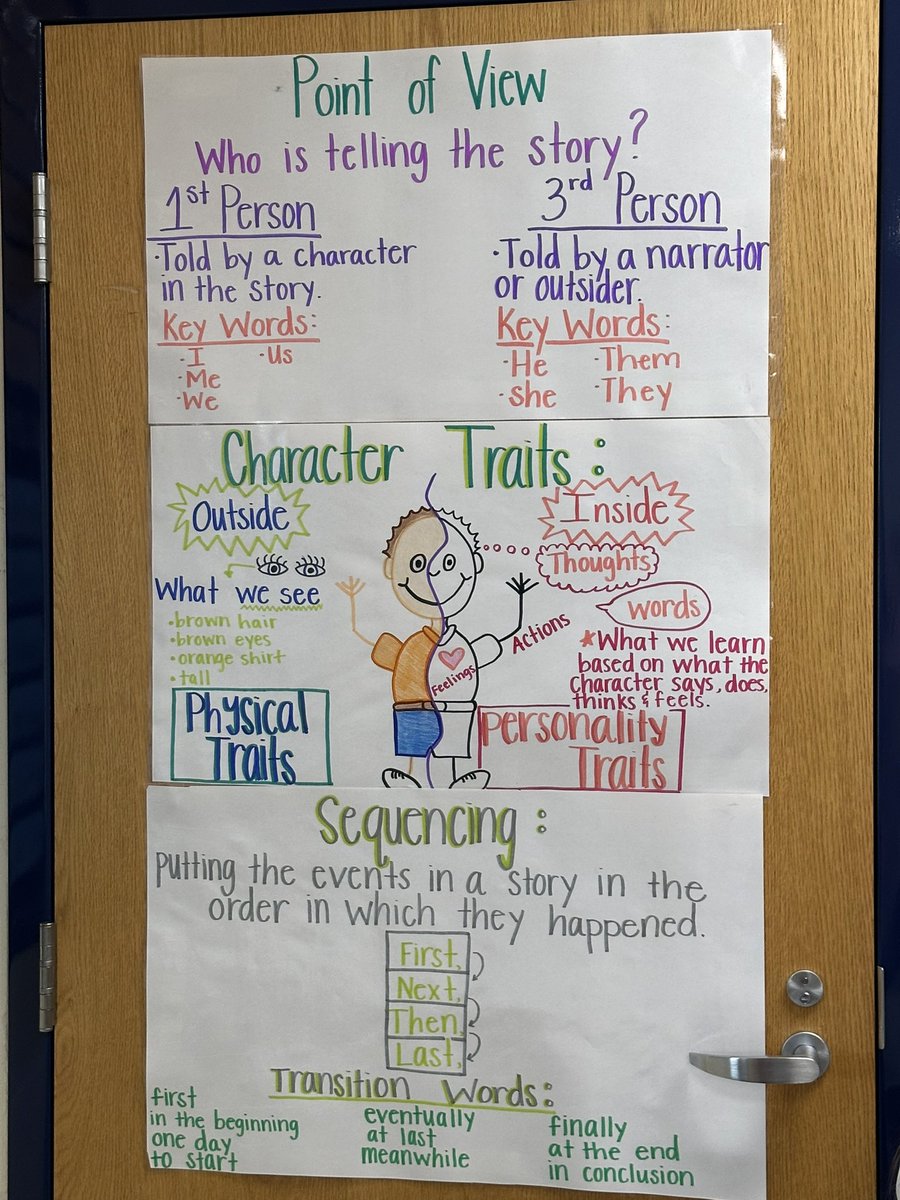 Point of View
Who is telling the story?
1st Person
·Told by a character
in the story.
Key Words:
·I ·Us
·Me
·We
3rd Person
·Told by a narrator
or outsider.
Key Words:
·He ·Them
·She ·They
Character Traits:
Outside
What we see
•brown hair
•brown eyes
•orange shirt
•tall
Physical
Traits
Inside
Thoughts
words
Actions
Feelings
*What we learn
based on what the
character says, does,
thinks & feels.
Personality
Traits
Sequencing:
Putting the events in a story in the
order in which they happened.
First,
Next,
Then,
Last,
Transition Words:
first
in the beginning
one day
to start
eventually
at last
meanwhile
finally
at the end
in conclusion